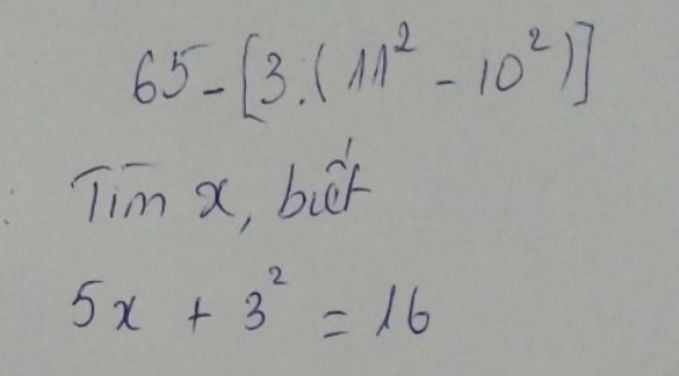 65 - [3.(11² - 10²)]
Tìm x, biết
5x + 3² = 16